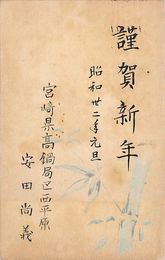 謹賀新年
昭和廿二年元旦
宮崎県高鍋局区西平原
安田尚義